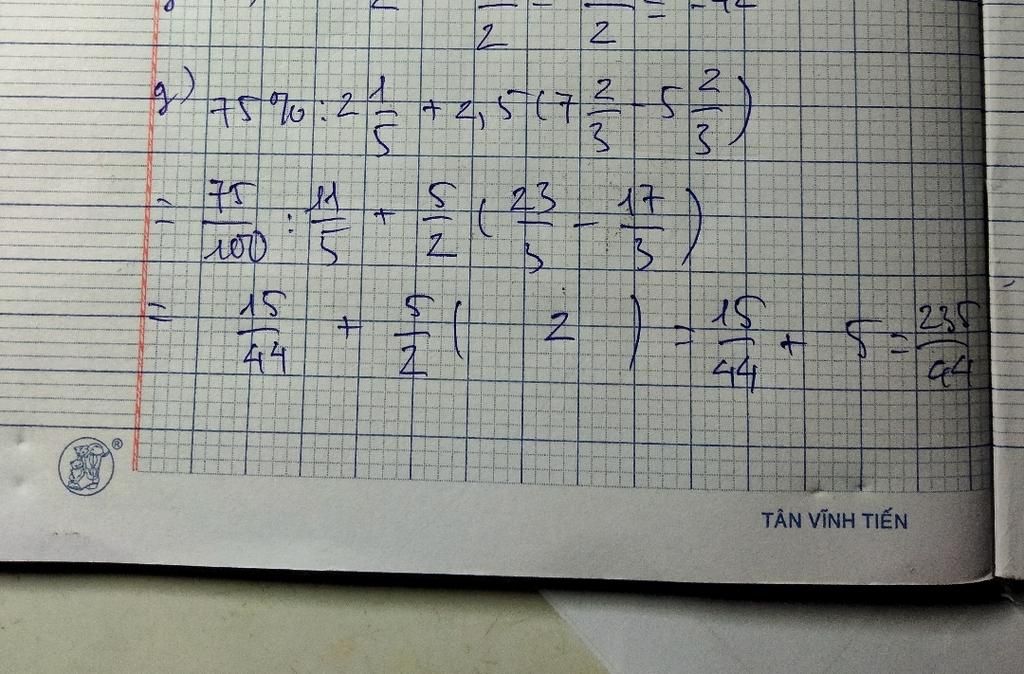 2 2 = -42
g) 75% : 2 1/5 + 2,5 (7 2/3 - 5 2/3)
= 75/100 : 11/5 + 5/2 (23/3 - 17/3)
= 15/44 + 5/2 ( 2 ) = 15/44 + 5 = 235/44
®
TÂN VĨNH TIẾN